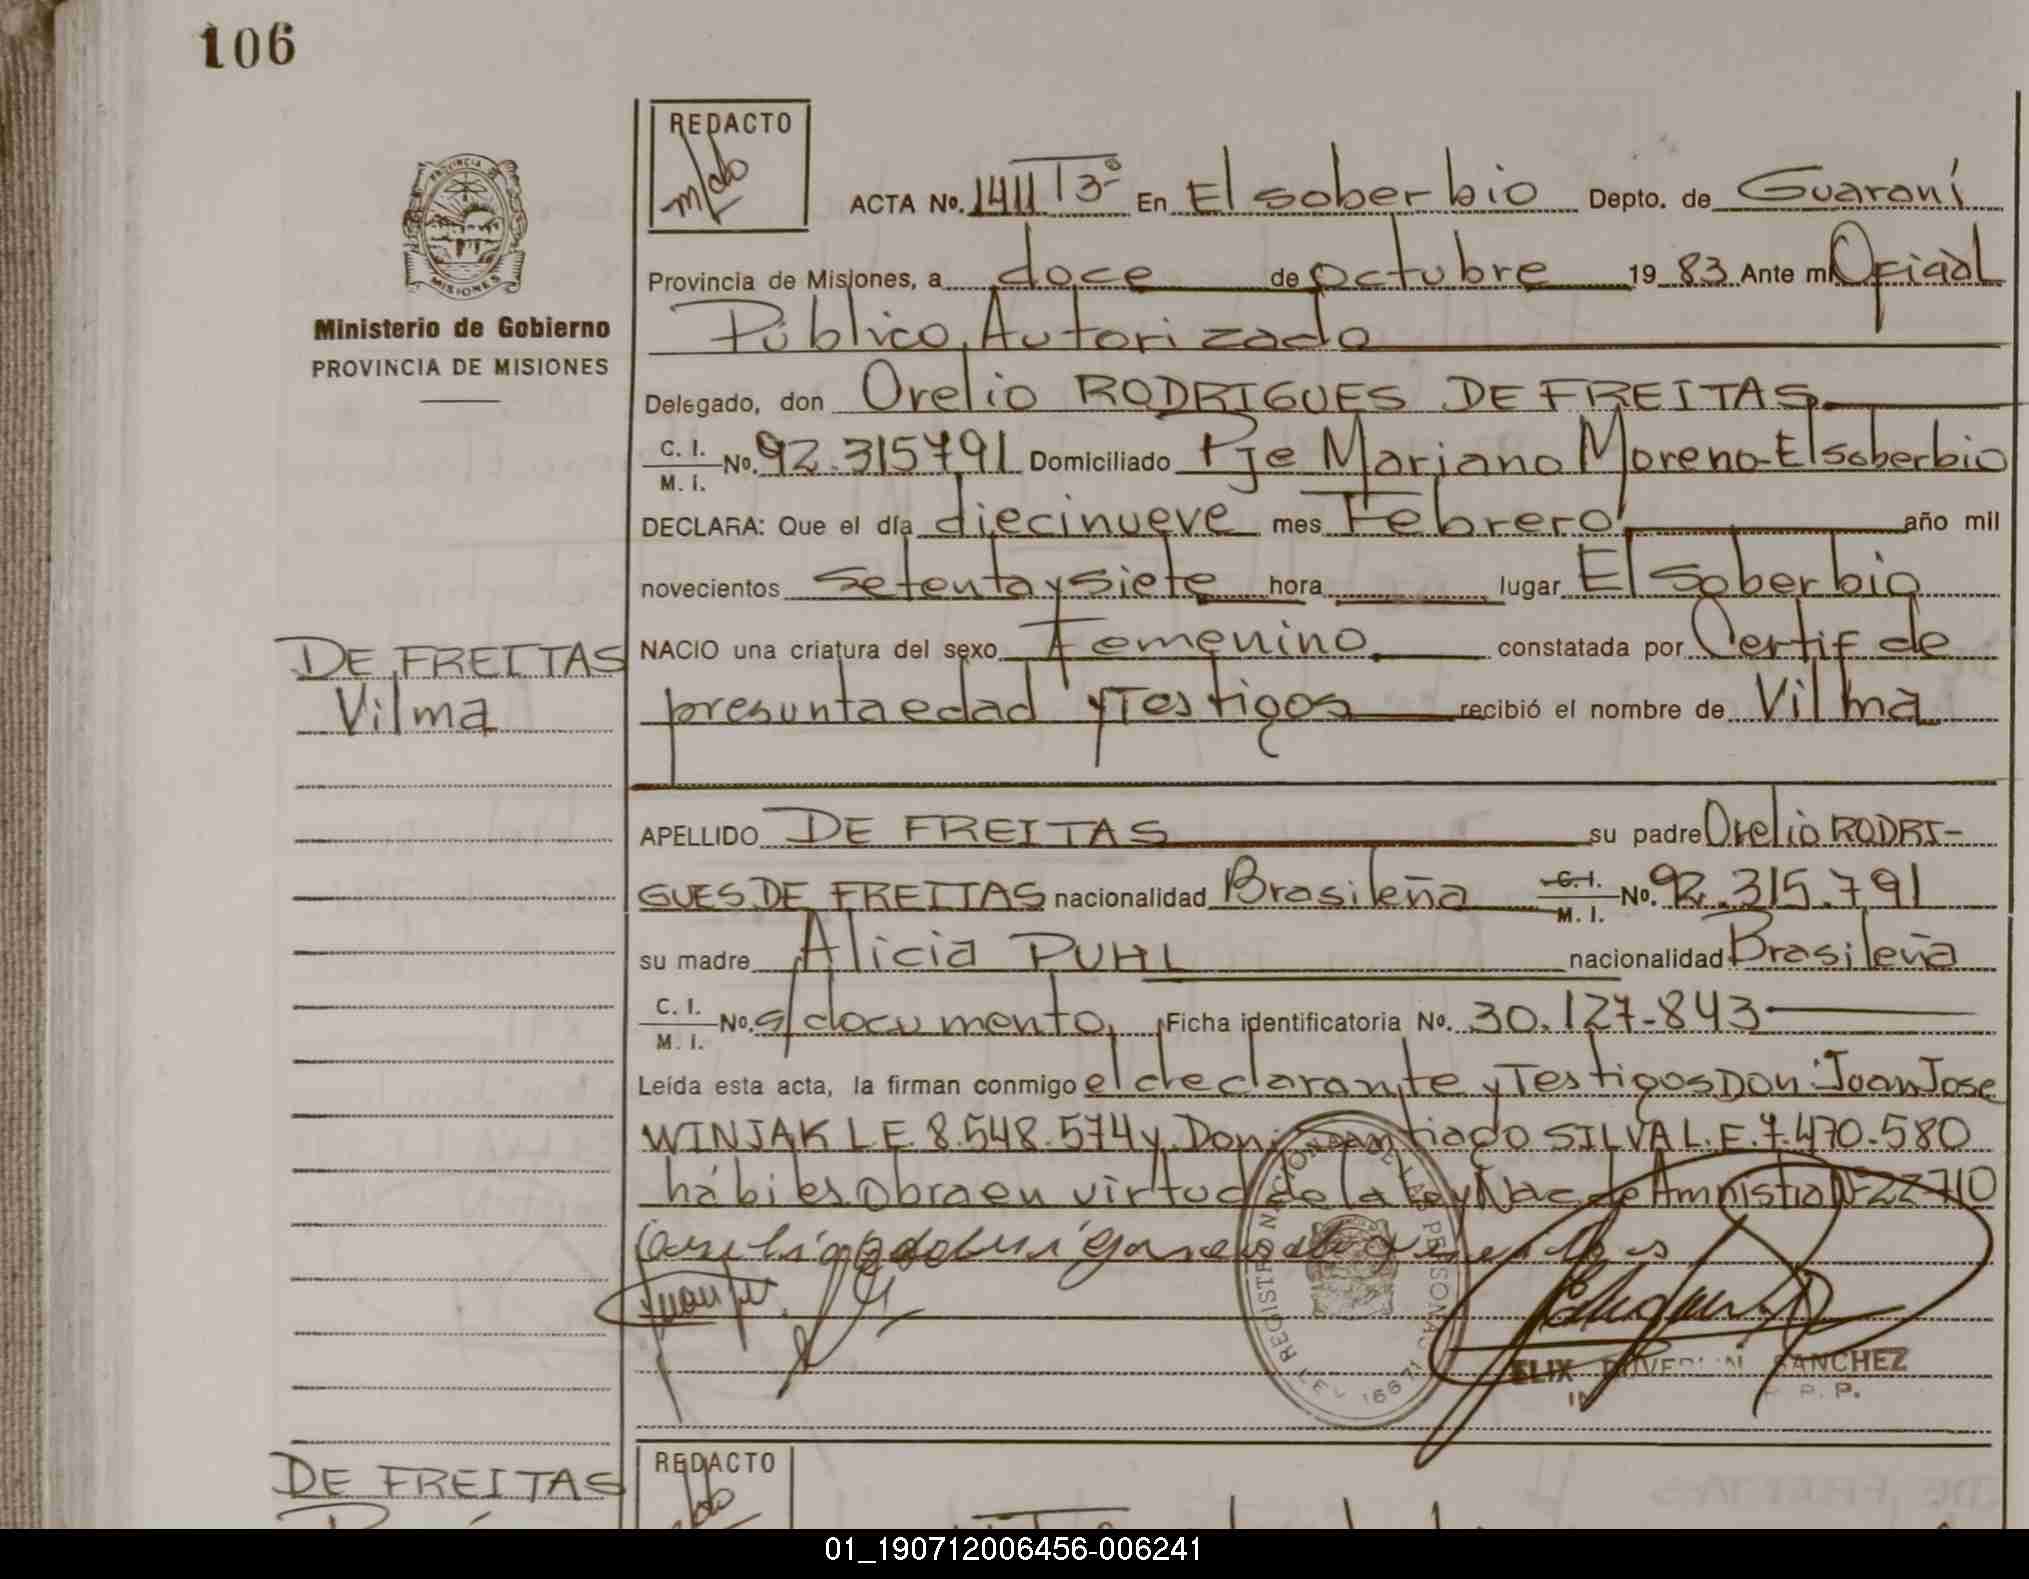 106
REDACTO
PROVINCIA DE
MISIONES
Ministerio de Gobierno
PROVINCIA DE MISIONES
ACTA No. 1411 T 3º En El Soberbio Depto. de Guaraní
Provincia de Misiones, a doce de octubre 19 83 Ante mi Oficial
Público Autorizado
Delegado, don Orelio RODRIGUES DE FREITAS
C. I. / M. I. No. 92.315791 Domiciliado Pje Mariano Moreno-El soberbio
DECLARA: Que el día diecinueve mes Febrero año mil
novecientos setenta y siete hora lugar El soberbio
DE FREITAS
Vilma
NACIO una criatura del sexo Femenino constatada por Certif de
presunta edad y Testigos recibió el nombre de Vilma
APELLIDO DE FREITAS su padre Orelio RODRI-
GUES DE FREITAS nacionalidad Brasileña C. I. / M. I. No. 92.315.791
su madre Alicia PUHL nacionalidad Brasileña
C. I. / M. I. No. s/documento, Ficha identificatoria No. 30.127-843
Leída esta acta, la firman conmigo el declarante y Testigos Don Juan Jose
WINJAK L.E. 8.548.574 y Don Santiago SILVA L.E. 7.470.580
hábiles Obra en virtud de la Ley Nac de Amnistia Nº 22710
REGISTRO NACIONAL DE LAS PERSONAS
LEY 16671
SANCHEZ
P. P.
DE FREITAS
REDACTO
01_190712006456-006241